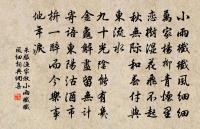 小雨纖纖風細細
萬家楊柳青煙裏
戀樹濕花飛不起
愁無際和春付與
東流水
九十光陰能有幾
金龜解盡留無計
寄語東陽沽酒市
拚一醉而今樂事
他年淚
朱服漁家傲小雨纖纖
風細細